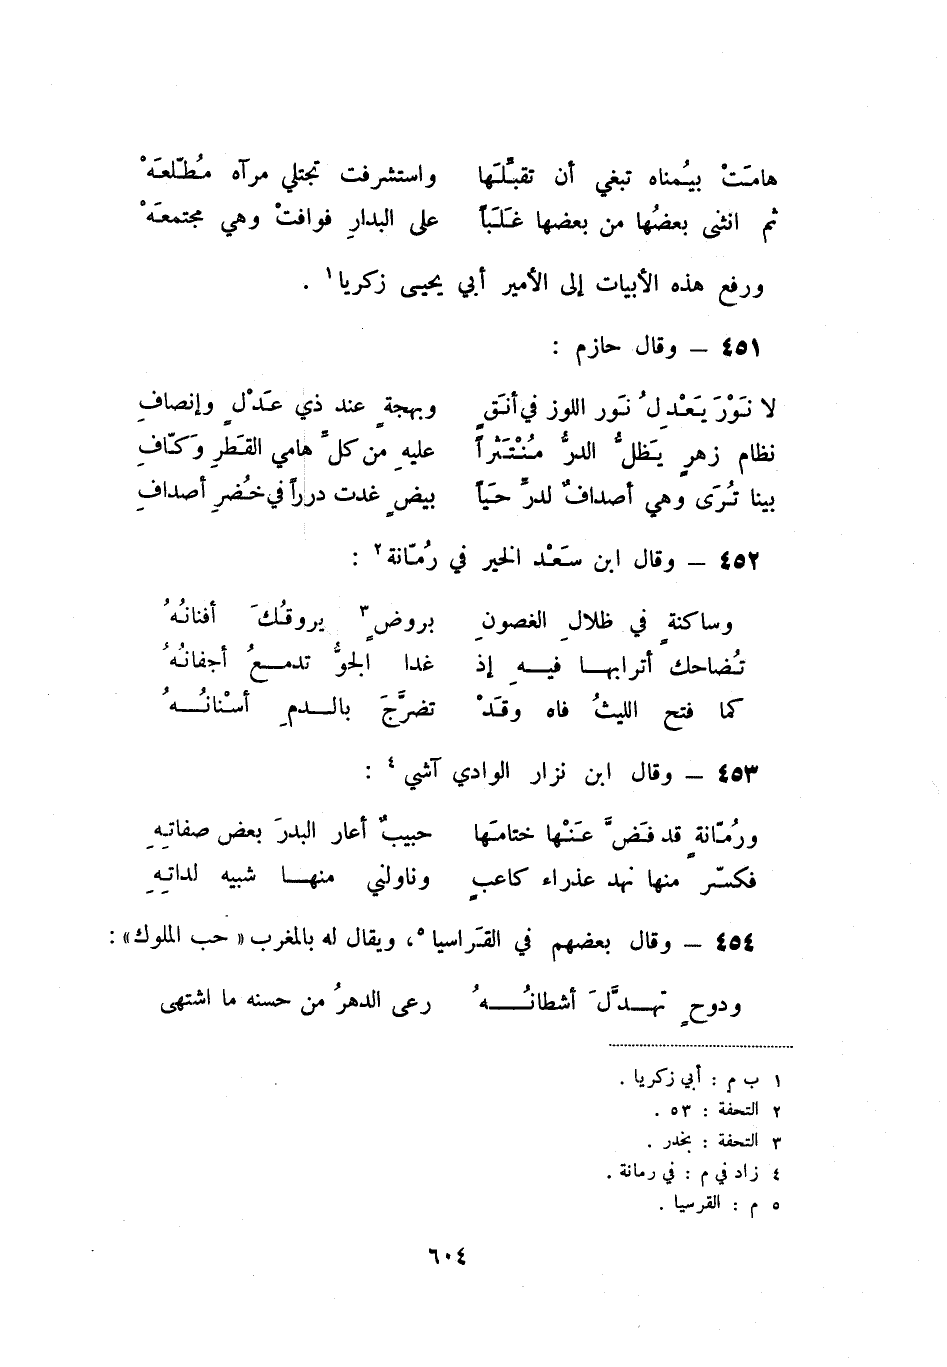 هامَتْ بيُمناه تبغي أن تقبِّلَها واستشرفت تجتلي مرآه مُطّلعَهْ
ثم انثنى بعضُها من بعضها غَلَباً على البدارِ فوافتْ وهي مجتمعَهْ
ورفع هذه الأبيات إلى الأمير أبي يحيى زكريا١ .
٤٥١ – وقال حازم :
لا نَوْرَ يَعْدِلُ نَور اللوز في أنَقٍ وبهجةٍ عند ذي عَدْلٍ وإنصافِ
نظام زهرٍ يَظلُّ الدرُّ مُنْتَثراً عليهِ من كلّ هامي القَطرِ وَكّافِ
بينا تُرَى وهي أصدافٌ لدرِّ حَياً بيضٍ غدت درراً في خُضرِ أصدافِ
٤٥٢ – وقال ابن سَعْد الخير في رُمّانة٢ :
وساكنةٍ في ظلالِ الغصونِ بروضٍ٣ يروقُكَ أفنانُهُ
تُضاحك أترابها فيهِ إذ غدا الجوُّ تدمعُ أجفانُهُ
كما فتح الليثُ فاه وقَدْ تضرَّجَ بالدمِ أسْنانُهُ
٤٥٣ – وقال ابن نزار الوادي آشي٤ :
ورُمّانةٍ قد فَضَّ عَنْها ختامَها حبيبٌ أعار البدرَ بعض صفاتِهِ
فكسّر منها نهد عذراء كاعبٍ وناولني منها شبيه لداتِهِ
٤٥٤ – وقال بعضهم في القَراسيا٥، ويقال له بالمغرب « حب الملوك » :
ودوحٍ تهدَّلَ أشطانُهُ رعى الدهرُ من حسنه ما اشتهى
١ ب م : أبي زكريا .
٢ التحفة : ٥٣ .
٣ التحفة : بخدر .
٤ زاد في م : في رمانة .
٥ م : القرسيا .
٦٠٤